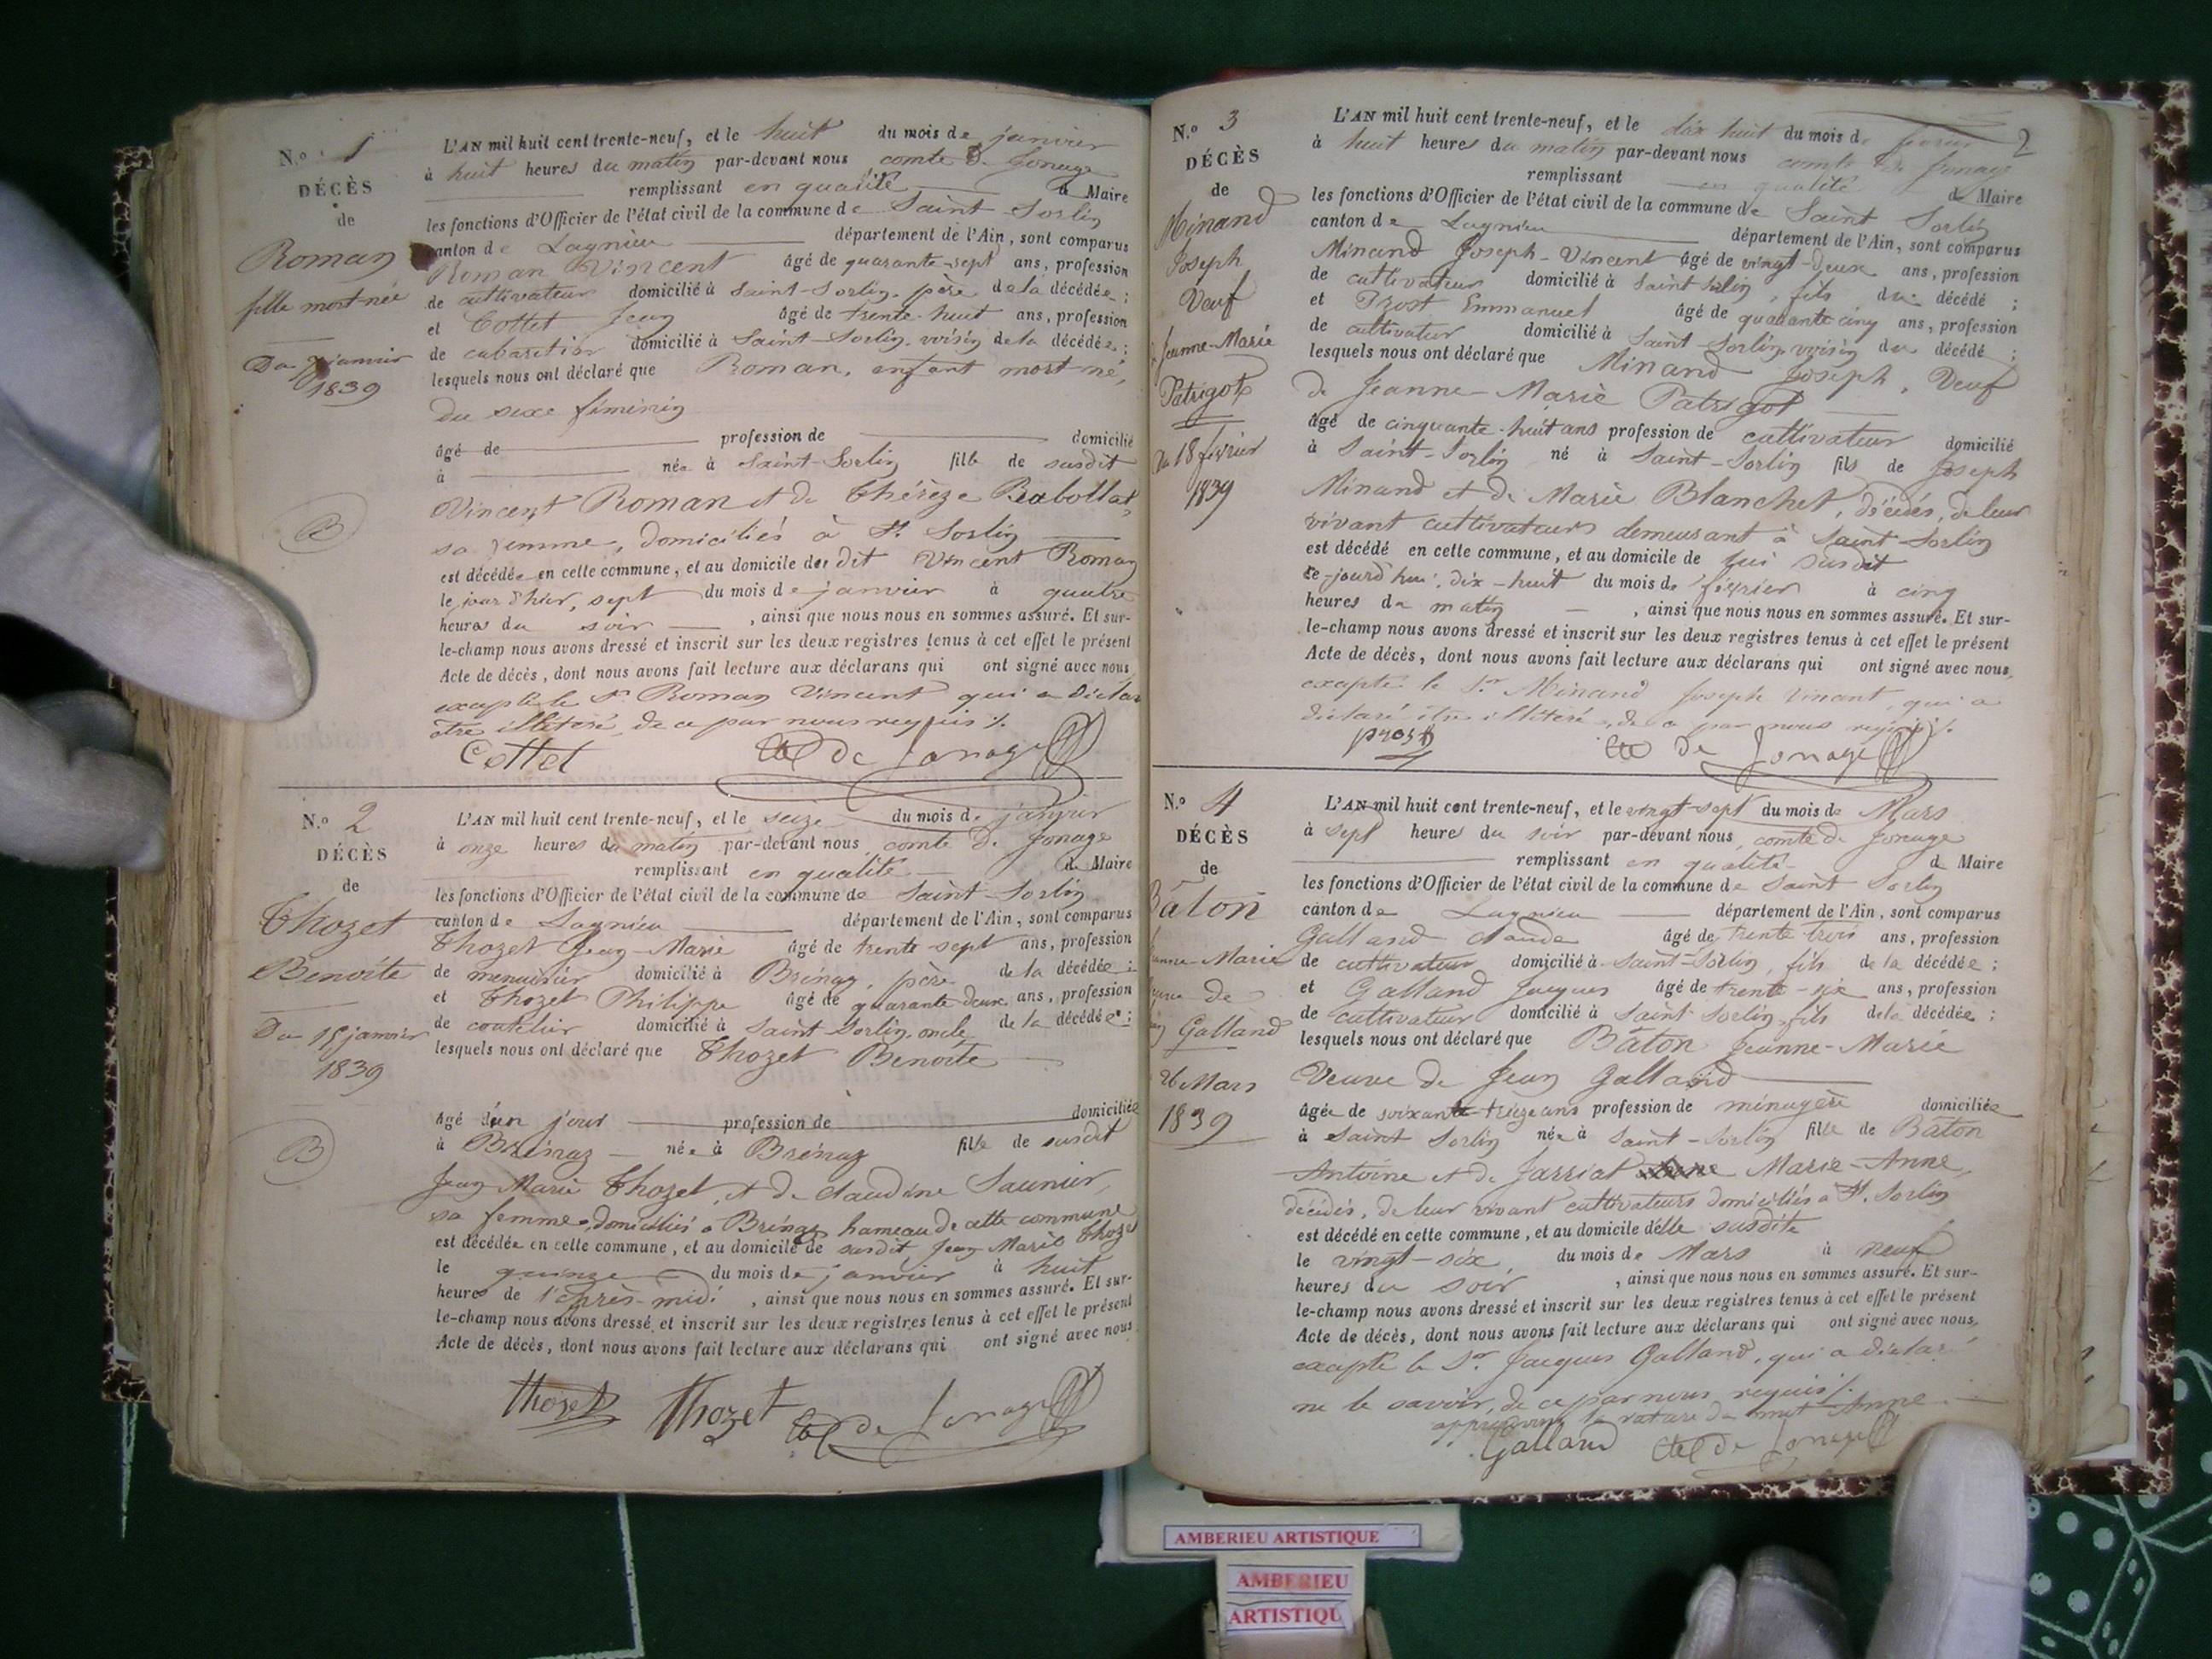 N.º 1
DÉCÈS
de
Roman
fille mort-née
Du 7 janvier
1839
L'AN mil huit cent trente-neuf, et le huit du mois de janvier
à huit heures du matin par-devant nous comte de Jonage
remplissant en qualité de Maire
les fonctions d'Officier de l'état civil de la commune de Saint-Sorlin
canton de Lagnieu département de l'Ain, sont comparus
Roman Vincent âgé de quarante-sept ans, profession
de cultivateur domicilié à Saint-Sorlin, père de la décédée ;
et Cottet Jean âgé de trente-huit ans, profession
de cabaretier domicilié à Saint-Sorlin, voisin de la décédée ;
lesquels nous ont déclaré que Roman, enfant mort-né,
du sexe féminin
âgé de profession de domicilié
à née à Saint-Sorlin fille de susdit
Vincent Roman et de Thérèze
sa femme, domiciliés à St. Sorlin
est décédée en cette commune, et au domicile du dit Vincent Roman
le jour d'hier, sept du mois de janvier à quatre
heures du soir , ainsi que nous nous en sommes assuré. Et sur-
le-champ nous avons dressé et inscrit sur les deux registres tenus à cet effet le présent
Acte de décès, dont nous avons fait lecture aux déclarans qui ont signé avec nous,
excepté le Sr. Roman Vincent qui a déclaré
être illitéré, de ce par nous requis ./.
Cottet Cte de Jonage
B
N.º 2
DÉCÈS
de
Thozet
Benoite
Du 15 janvier
1839
L'AN mil huit cent trente-neuf, et le seize du mois de janvier
à onze heures du matin par-devant nous comte de Jonage
remplissant en qualité de Maire
les fonctions d'Officier de l'état civil de la commune de Saint-Sorlin
canton de Lagnieu département de l'Ain, sont comparus
Thozet Jean-Marie âgé de trente-sept ans, profession
de menuisier domicilié à Brénaz, père de la décédée ;
et Thozet Philippe âgé de quarante deux ans, profession
de coutelier domicilié à Saint Sorlin, oncle de la décédée ;
lesquels nous ont déclaré que Thozet Benoite
âgé d'un jour profession de domiciliée
à Brénaz née à Brénaz fille de susdit
Jean Marie Thozet, et de Claudine Saunier,
sa femme, domiciliés à Brénaz, hameau de cette commune
est décédée en cette commune, et au domicile de susdit Jean Marie Thozet
le quinze du mois de janvier à huit
heures de l'après-midi , ainsi que nous nous en sommes assuré. Et sur-
le-champ nous avons dressé et inscrit sur les deux registres tenus à cet effet le présent
Acte de décès, dont nous avons fait lecture aux déclarans qui ont signé avec nous
Thozet Thozet Cte de Jonage
B
2
N.º 3
DÉCÈS
de
Minand
Joseph
Veuf
Jeanne-Marie
Patrigot
Du 18 février
1839
L'AN mil huit cent trente-neuf, et le dix huit du mois de février
à huit heures du matin par-devant nous comte de Jonage
remplissant en qualité de Maire
les fonctions d'Officier de l'état civil de la commune de Saint Sorlin
canton de Lagnieu département de l'Ain, sont comparus
Minand Joseph-Vincent âgé de vingt-deux ans, profession
de cultivateur domicilié à Saint Sorlin, fils du décédé ;
et Prost Emmanuel âgé de quarante cinq ans, profession
de cultivateur domicilié à Saint-Sorlin, voisin du décédé ;
lesquels nous ont déclaré que Minand Joseph, Veuf
de Jeanne-Marie Patrigot
âgé de cinquante-huit ans profession de cultivateur domicilié
à Saint-Sorlin né à Saint-Sorlin fils de Joseph
Minand et de Marie Blanchet, décédés, de leur
vivant cultivateurs demeurant à Saint-Sorlin
est décédé en cette commune, et au domicile de lui susdit
ce-jourd'hui, dix-huit du mois de février à cinq
heures du matin , ainsi que nous nous en sommes assuré. Et sur-
le-champ nous avons dressé et inscrit sur les deux registres tenus à cet effet le présent
Acte de décès, dont nous avons fait lecture aux déclarans qui ont signé avec nous,
excepté le Sr. Minand Joseph Vincent, qui a
déclaré être illitéré, de ce par nous requis ./.
prost Cte de Jonage
N.º 4
DÉCÈS
de
Bâton
Jeanne-Marie
veuve de
Galland
26 Mars
1839
L'AN mil huit cent trente-neuf, et le vingt-sept du mois de Mars
à sept heures du soir par-devant nous comte de Jonage
remplissant en qualité de Maire
les fonctions d'Officier de l'état civil de la commune de Saint Sorlin
canton de Lagnieu département de l'Ain, sont comparus
Galland Claude âgé de trente trois ans, profession
de cultivateur domicilié à Saint-Sorlin, fils de la décédée ;
et Galland Jacques âgé de trente-six ans, profession
de cultivateur domicilié à Saint Sorlin, fils de la décédée ;
lesquels nous ont déclaré que Bâton Jeanne-Marie
Veuve de Jean Galland
âgée de soixante-treize ans profession de ménagère domiciliée
à Saint Sorlin née à Saint-Sorlin fille de Bâton
Antoine et de Jarriat Marie-Anne,
décédés, de leur vivant cultivateurs domiciliés à St. Sorlin
est décédé en cette commune, et au domicile d'elle susdite
le vingt-six du mois de Mars à neuf
heures du soir , ainsi que nous nous en sommes assuré. Et sur-
le-champ nous avons dressé et inscrit sur les deux registres tenus à cet effet le présent
Acte de décès, dont nous avons fait lecture aux déclarans qui ont signé avec nous,
excepté le Sr. Jacques Galland, qui a déclaré
ne le savoir, de ce par nous requis ./.
approuvons la rature du mot Anne
Galland Cte de Jonage
AMBERIEU ARTISTIQUE
AMBERIEU
ARTISTIQU